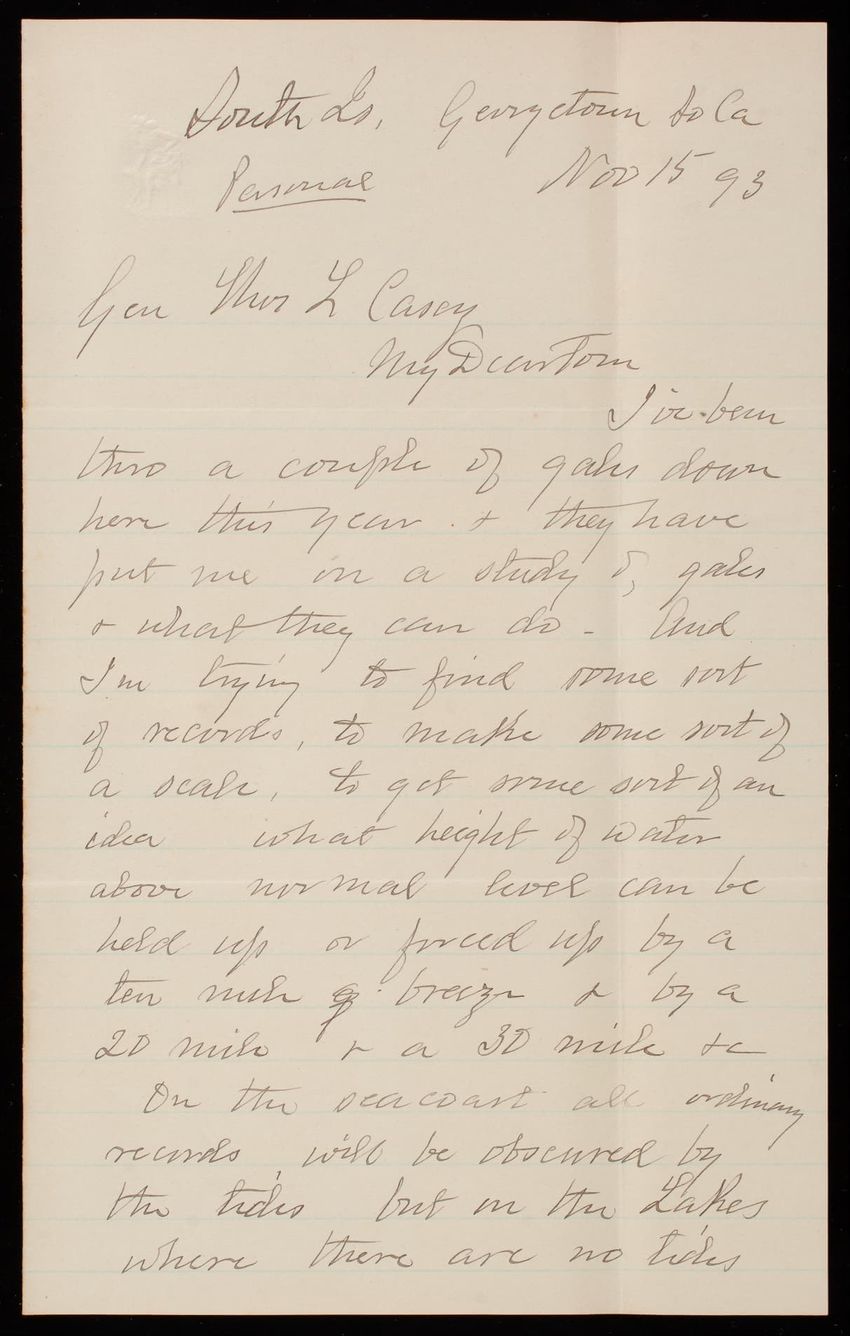 South Is, Georgetown So Ca
Personal Nov 15 93
Gen Thos L Casey
My Dear Tom
I've been
thro a couple of gales down
here this year & they have
put me on a study of gales
& what they can do - And
I'm trying to find some sort
of records, to make some sort of
a scale, to get some sort of an
idea what height of water
above normal level can be
held up or forced up by a
ten mile breeze & by a
20 mile & a 30 mile &c
On the seacoast all ordinary
records will be obscured by
the tides but on the Lakes
where there are no tides